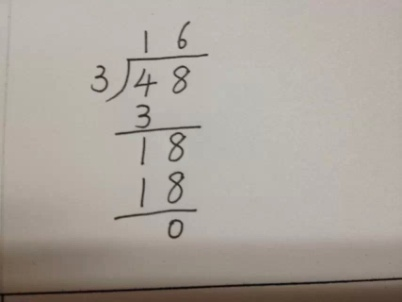 1 6
3)48
3
18
18
0